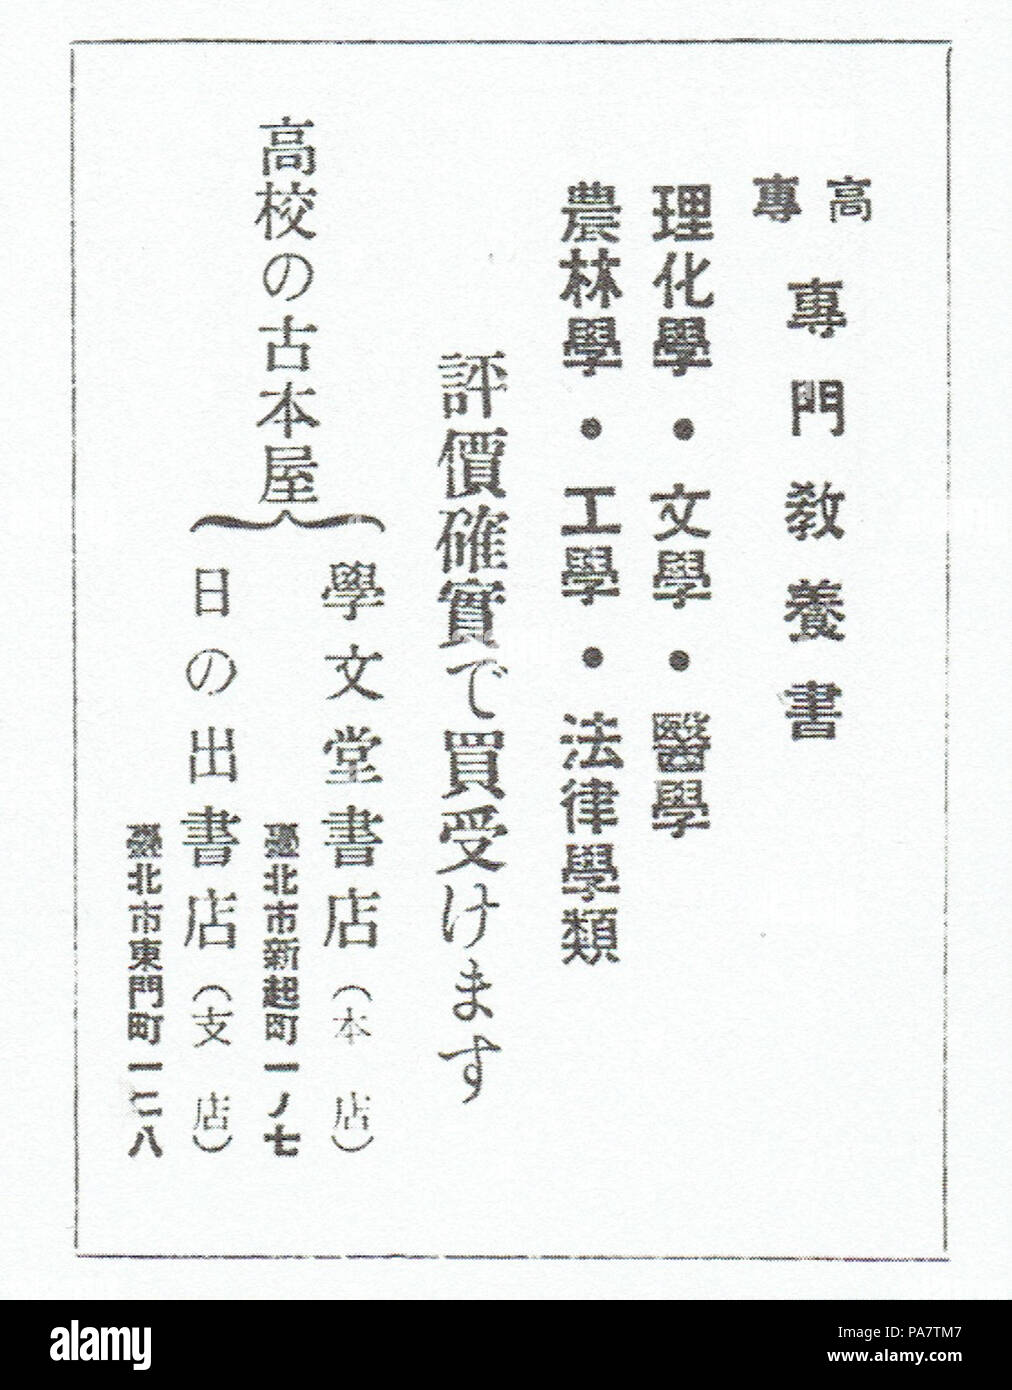 高專
專門教養書
理化學・文學・醫學
農林學・工學・法律學類
評價確實で買受けます
高校の古本屋
學文堂書店(本店)
臺北市新起町一ノ七
日の出書店(支店)
臺北市東門町一二八
alamy
Image ID: PA7TM7
www.alamy.com